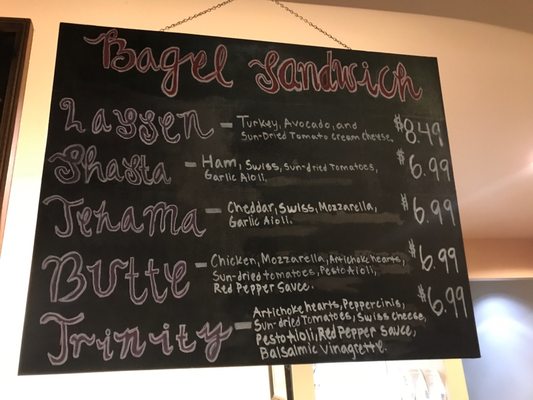 Bagel Sandwich
Lassen - Turkey, Avocado, and $8.49
Sun-Dried Tomato Cream Cheese.
Shasta - Ham, Swiss, Sun-dried Tomatoes, $6.99
Garlic Aioli.
Tehama - Cheddar, Swiss, Mozzarella, $6.99
Garlic Aioli.
Butte - Chicken, Mozzarella, Artichoke hearts, $6.99
Sun-dried tomatoes, Pesto Aioli,
Red Pepper Sauce.
Trinity - Artichoke hearts, Peppercinis, $6.99
Sun-dried Tomatoes, Swiss Cheese,
Pesto Aioli, Red Pepper Sauce,
Balsalmic Vinagrette.